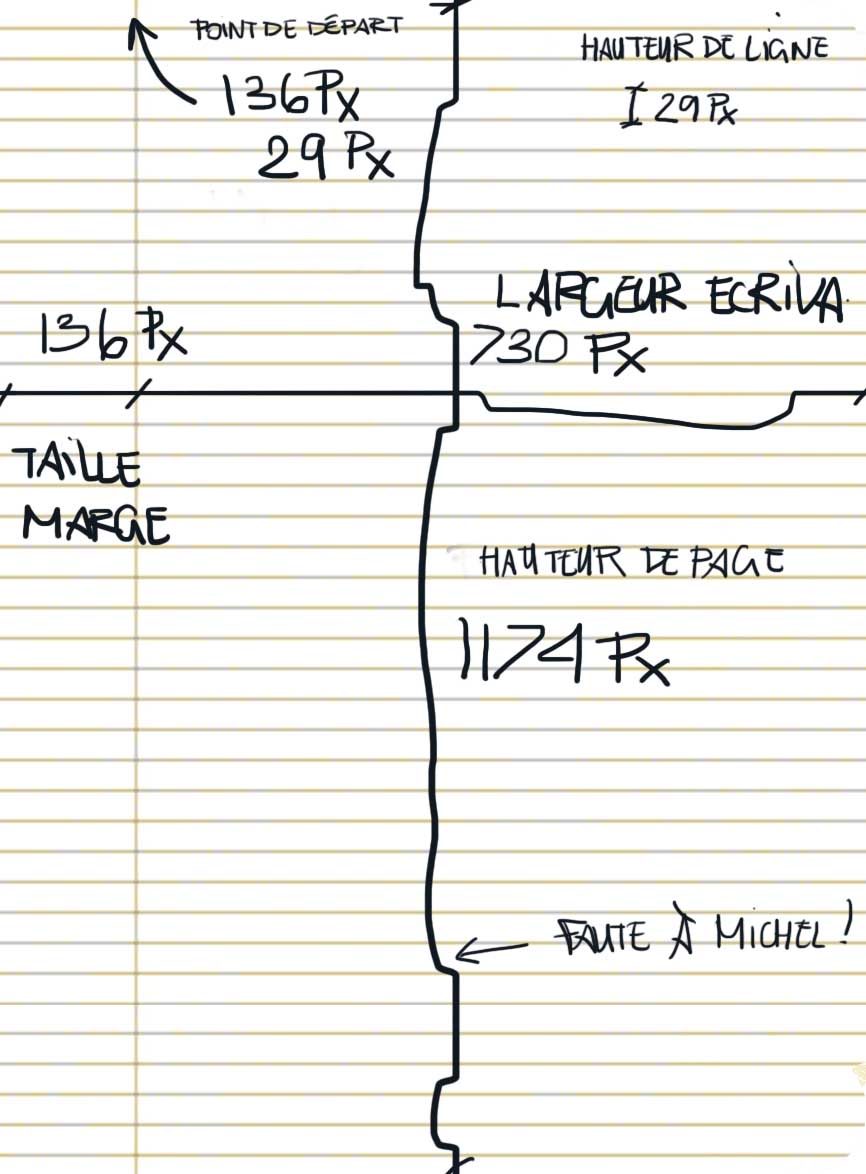 POINT DE DÉPART
136 Px
29 Px
HAUTEUR DE LIGNE
29 Px
LARGEUR ECRIVA.
730 Px
136 Px
TAILLE
MARGE
HAUTEUR DE PAGE
1174 Px
FAUTE À MICHEL !